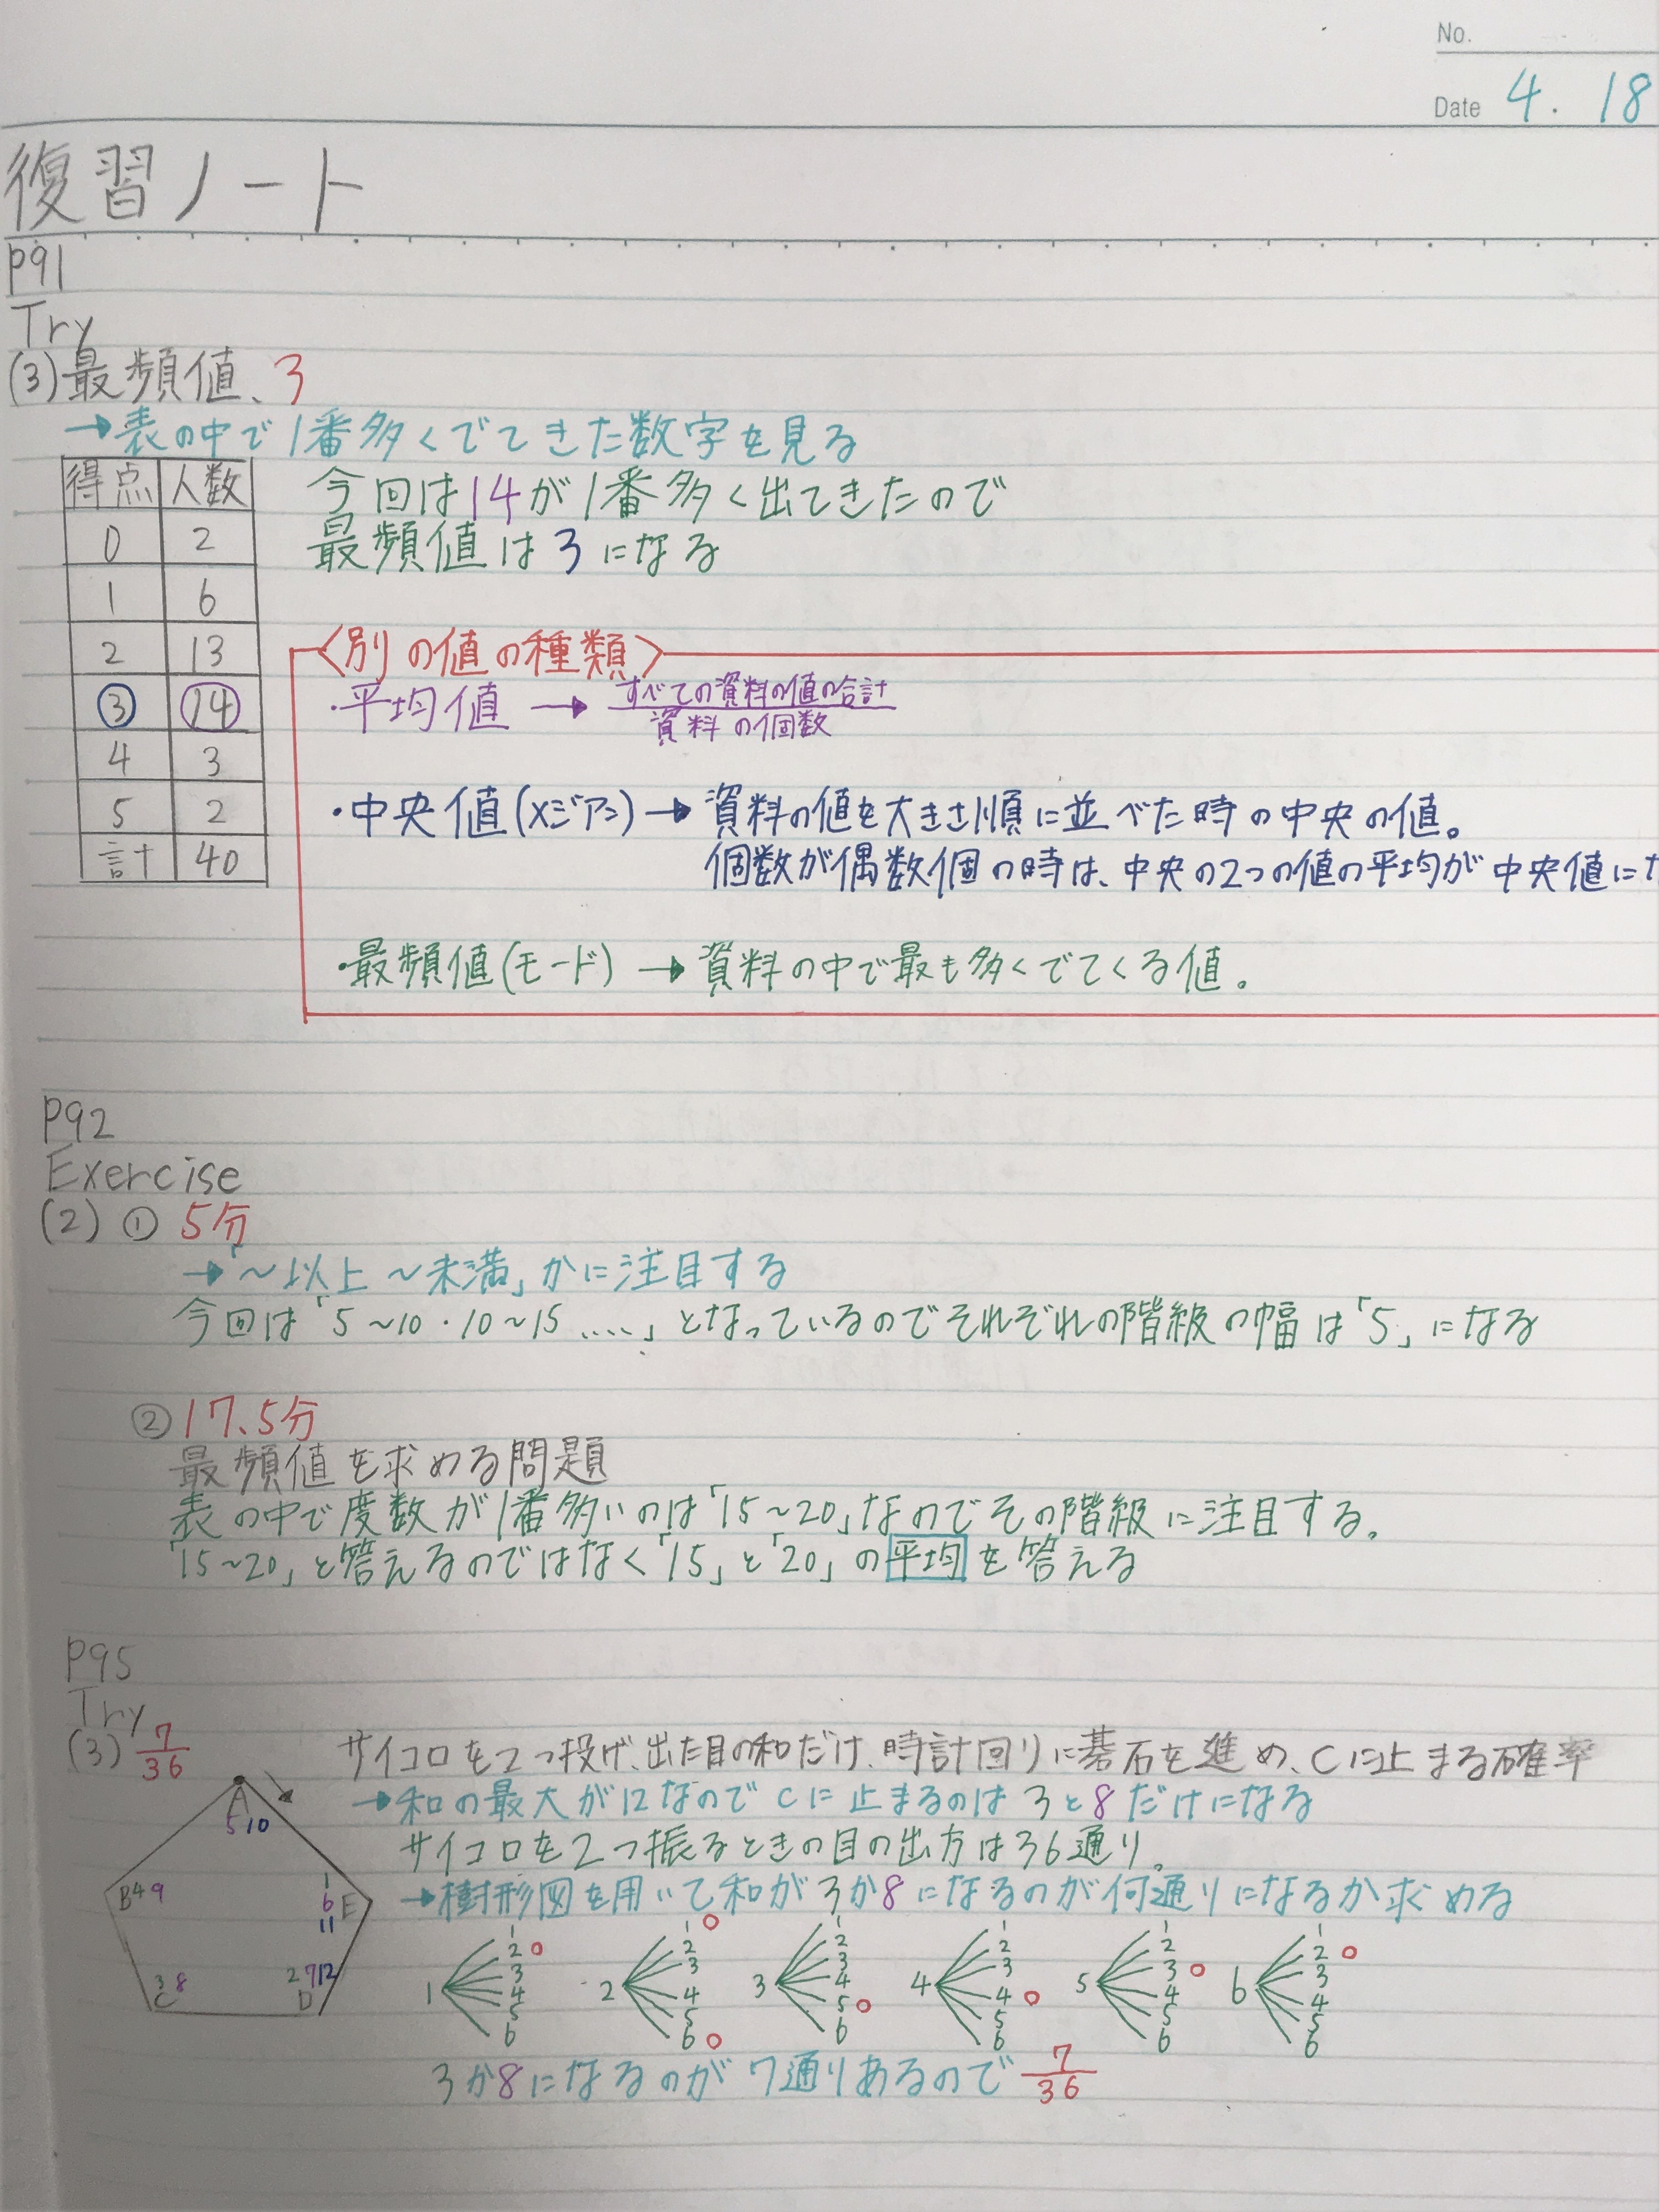 No.
Date 4. 18
復習ノート
P91
Try
(3)最頻値、3
→表の中で1番多くでてきた数字を見る
得点 人数
0 2
1 6
2 13
③ 14
4 3
5 2
計 40
今回は14が1番多く出てきたので
最頻値は3になる
〈別の値の種類〉
・平均値 → すべての資料の値の合計
資料の個数
・中央値(メジアン)→ 資料の値を大きさ順に並べた時の中央の値。
個数が偶数個の時は、中央の2つの値の平均が中央値に
・最頻値(モード) → 資料の中で最も多くでてくる値。
P92
Exercise
(2) ① 5分
→「〜以上 〜未満」かに注目する
今回は「5〜10・10〜15 ....」となっているのでそれぞれの階級の幅は「5」になる
② 17.5分
最頻値を求める問題
表の中で度数が1番多いのは「15〜20」なのでその階級に注目する。
「15〜20」と答えるのではなく「15」と「20」の平均を答える
P95
Try
(3) 7/36
サイコロを2つ投げ、出た目の和だけ、時計回りに碁石を進め、Cに止まる確率
→和の最大が12なのでCに止まるのは3と8だけになる
サイコロを2つ振るときの目の出方は36通り。
→樹形図を用いて和が3か8になるのが何通りになるか求める
A
5 10
B 4 9
1
6 E
11
3 8
C
2 7 12
D
1 1 2○ 3 4 5 6
2 1○ 2 3 4 5 6○
3 1 2 3 4 5○ 6
4 1 2 3 4○ 5 6
5 1 2 3○ 4 5 6
6 1 2○ 3 4 5 6
3か8になるのが7通りあるので 7/36